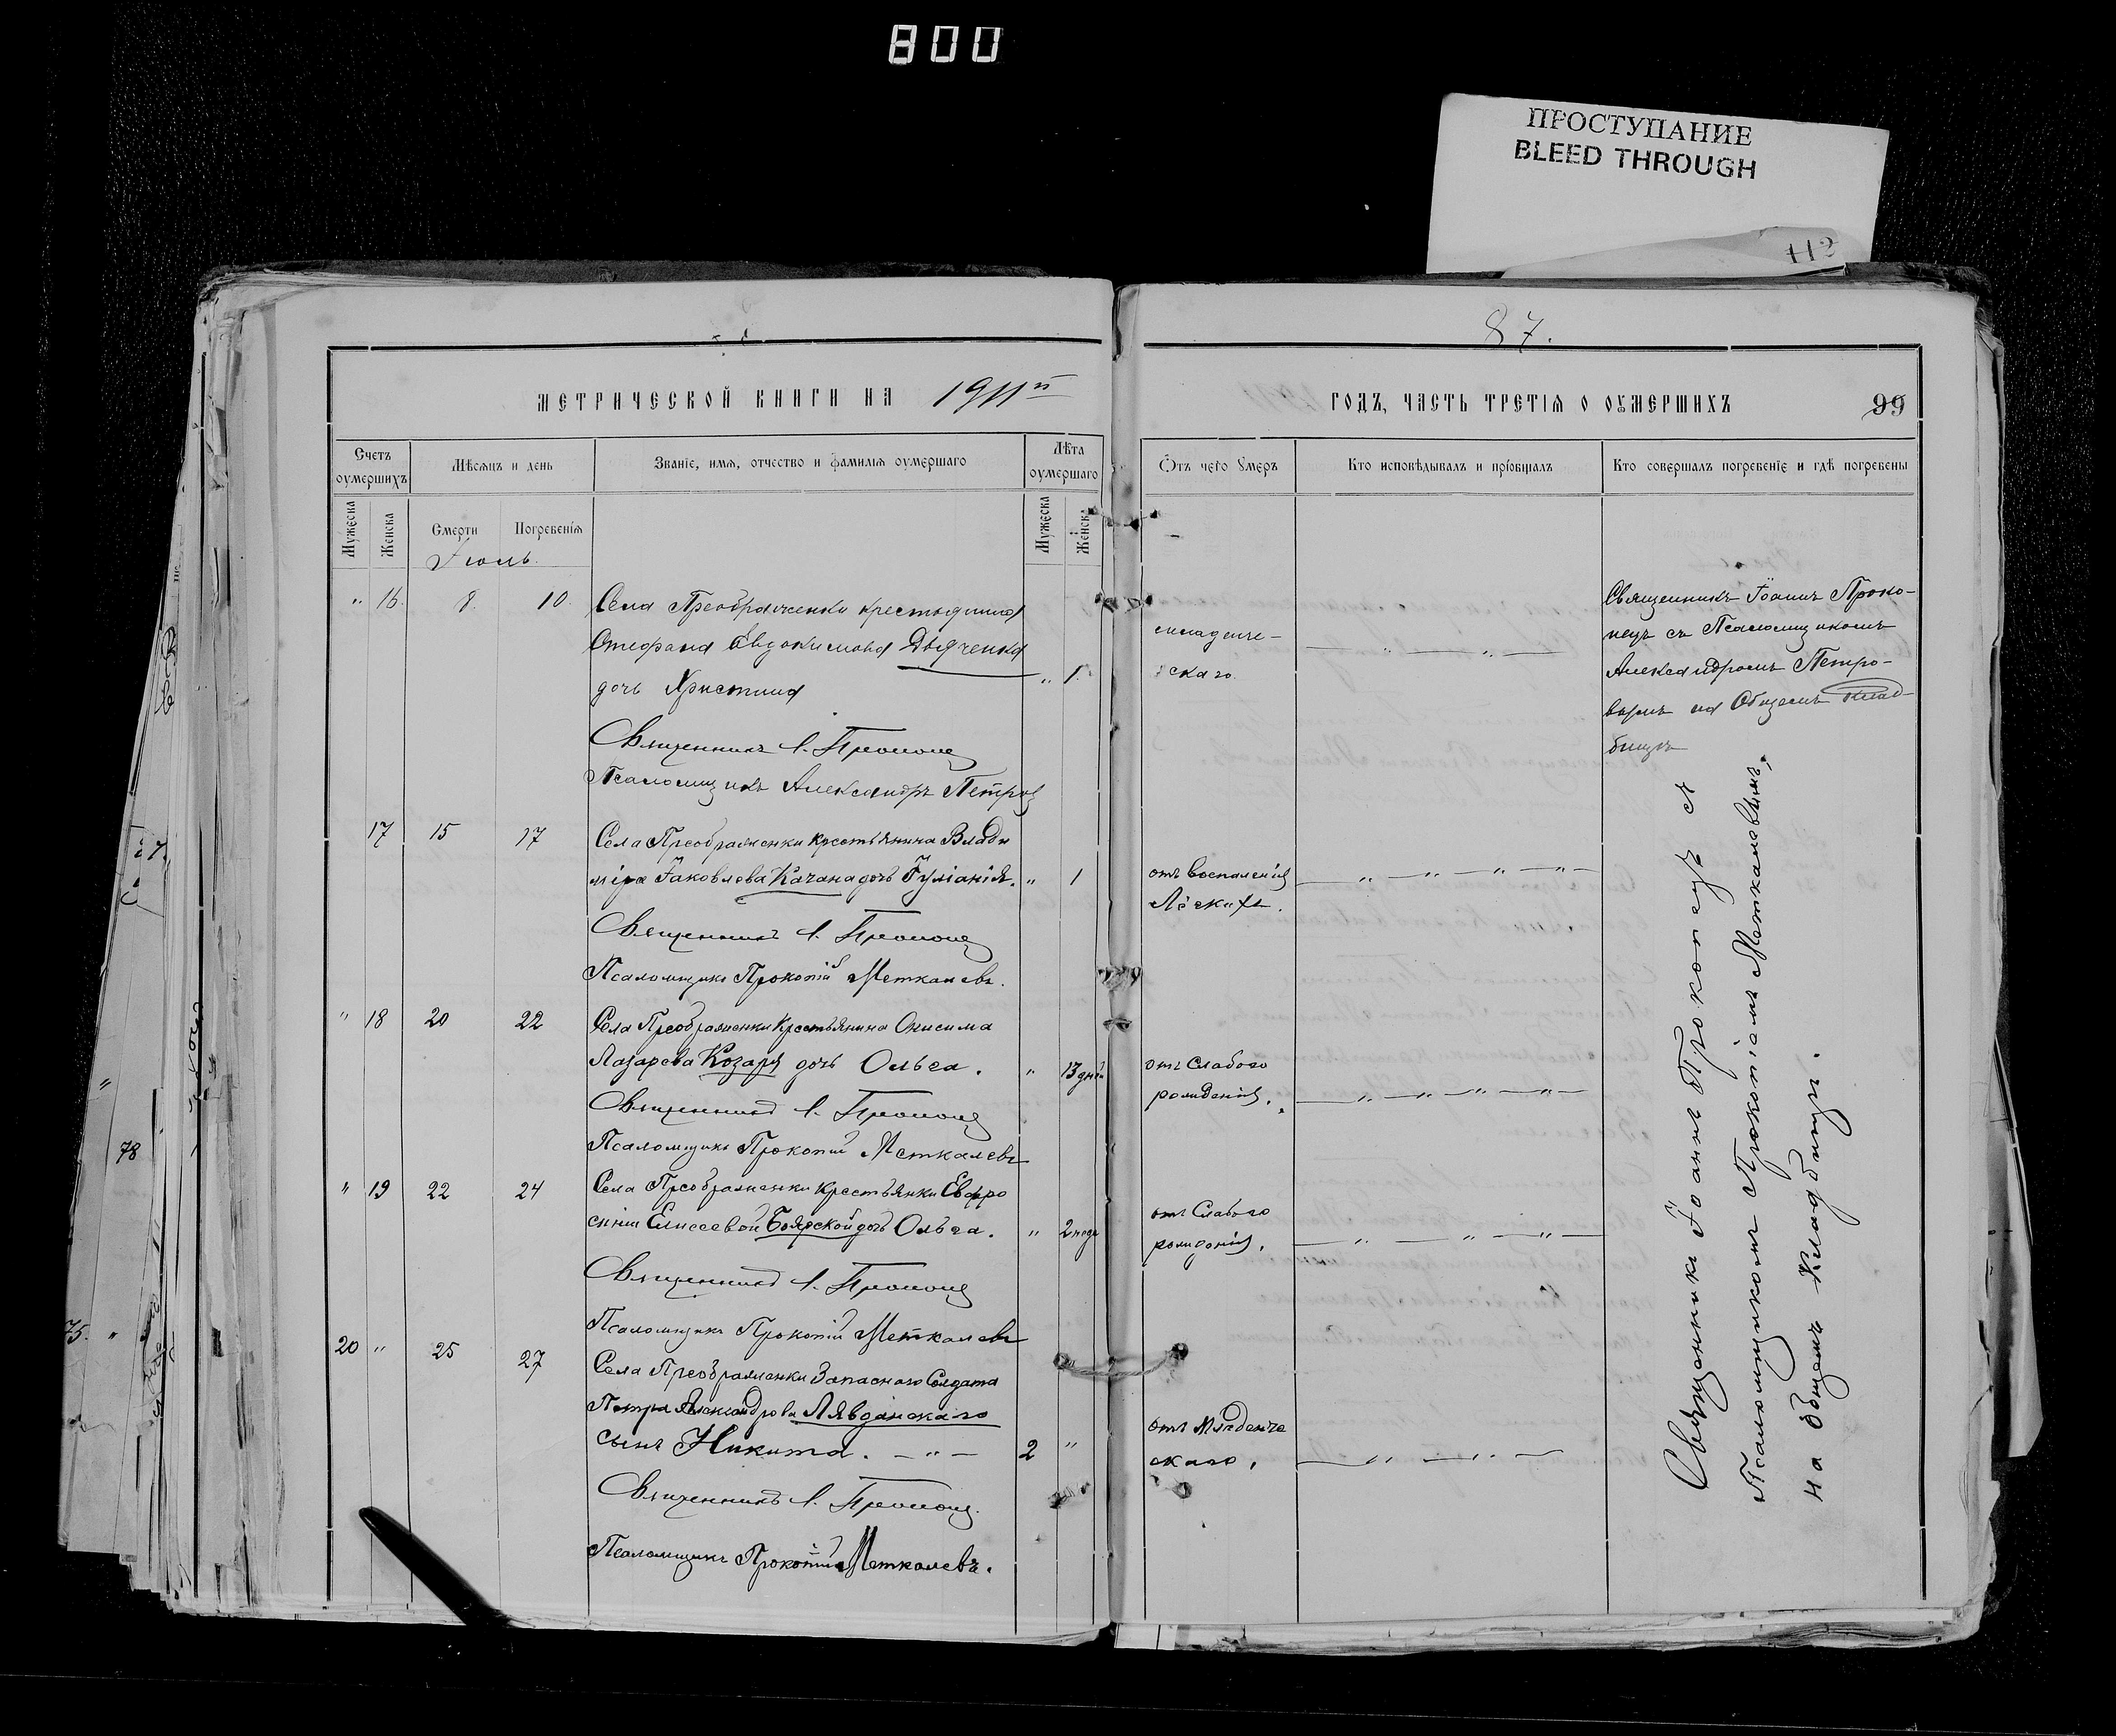 800
ПРОСТУПАНИЕ
BLEED THROUGH
112
87.
МЕТРИЧЕСКОЙ КНИГИ НА 1911й
ГОДЪ, ЧАСТЬ ТРЕТІЯ О ОУМЕРШИХЪ
99
Счетъ оумершихъ
Мѣсяцъ и день
Званіе, имя, отчество и фамилія оумершаго
Лѣта оумершаго
Отъ чего оумеръ
Кто исповѣдывалъ и пріобщалъ
Кто совершалъ погребеніе и гдѣ погребены
Мужеска
Женска
Смерти
Погребенія
Мужеска
Женска
Іюль.
" 16. 8. 10.
Села Преображенки крестьянина
Стефана Евдокимова Дьяченка
дочь Христина " 1.
младенче-
скаго.
Священникъ Іоаннъ Проко-
пецъ съ Псаломщикомъ
Александромъ Петро-
вымъ на Общемъ клад-
бищѣ
Священникъ І. Прокопец
Псаломщикъ Александръ Петров
17 15 17
Села Преображенки крестьянина Влади
міра Іаковлева Качана дочь Іуліанія. " 1
отъ воспаленія
Лёгкихъ.
Священникъ І. Прокопец
Псаломщикъ Прокопій Меткалевъ.
" 18 20 22
Села Преображенки Крестьянина Онисима
Лазарева Козаря дочь Ольга. " 13 дней
отъ Слабого
рожденія.
Священникъ І. Прокопец
Псаломщикъ Прокопій Меткалевъ
" 19 22 24
Села Преображенки крестьянки Евфро
синіи Елисеевой Боярской дочь Ольга. " 2 неде
отъ Слабого
рожденія.
Священникъ І. Прокопец
Псаломщикъ Прокопій Меткалевъ
20 " 25 27
Села Преображенки Запаснаго Солдата
Петра Александрова Лявданскаго
сынъ Никита. — " — 2 "
отъ Младенче
скаго.
Священникъ І. Прокопец.
Псаломщикъ Прокопій Меткалевъ.
Священникъ Іоаннъ Прокопецъ съ
Псаломщикомъ Прокопіемъ Меткалевымъ,
на общемъ Кладбищѣ.
78
75. "